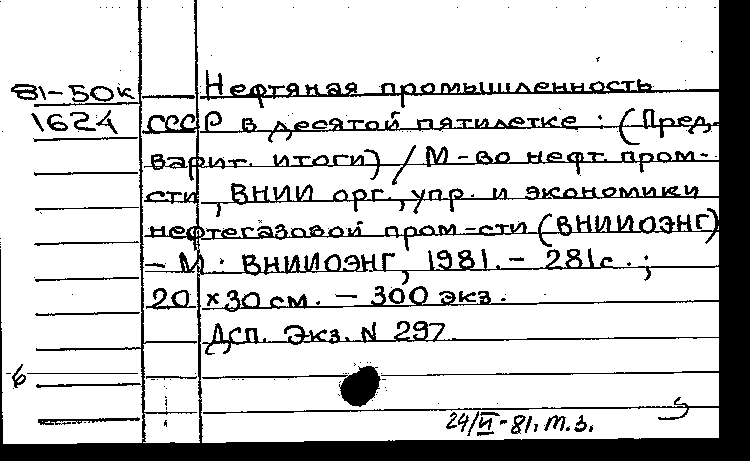 81-50к Нефтяная промышленность
1624 СССР в десятой пятилетке : (Пред-
варит. итоги) / М-во нефт. пром-
сти, ВНИИ орг., упр. и экономики
нефтегазовой пром-сти (ВНИИОЭНГ)
- М : ВНИИОЭНГ, 1981. - 281с. ;
20 × 30 см. - 300 экз.
ДСП. Экз. N 297.
6
24/VI-81. т.з.